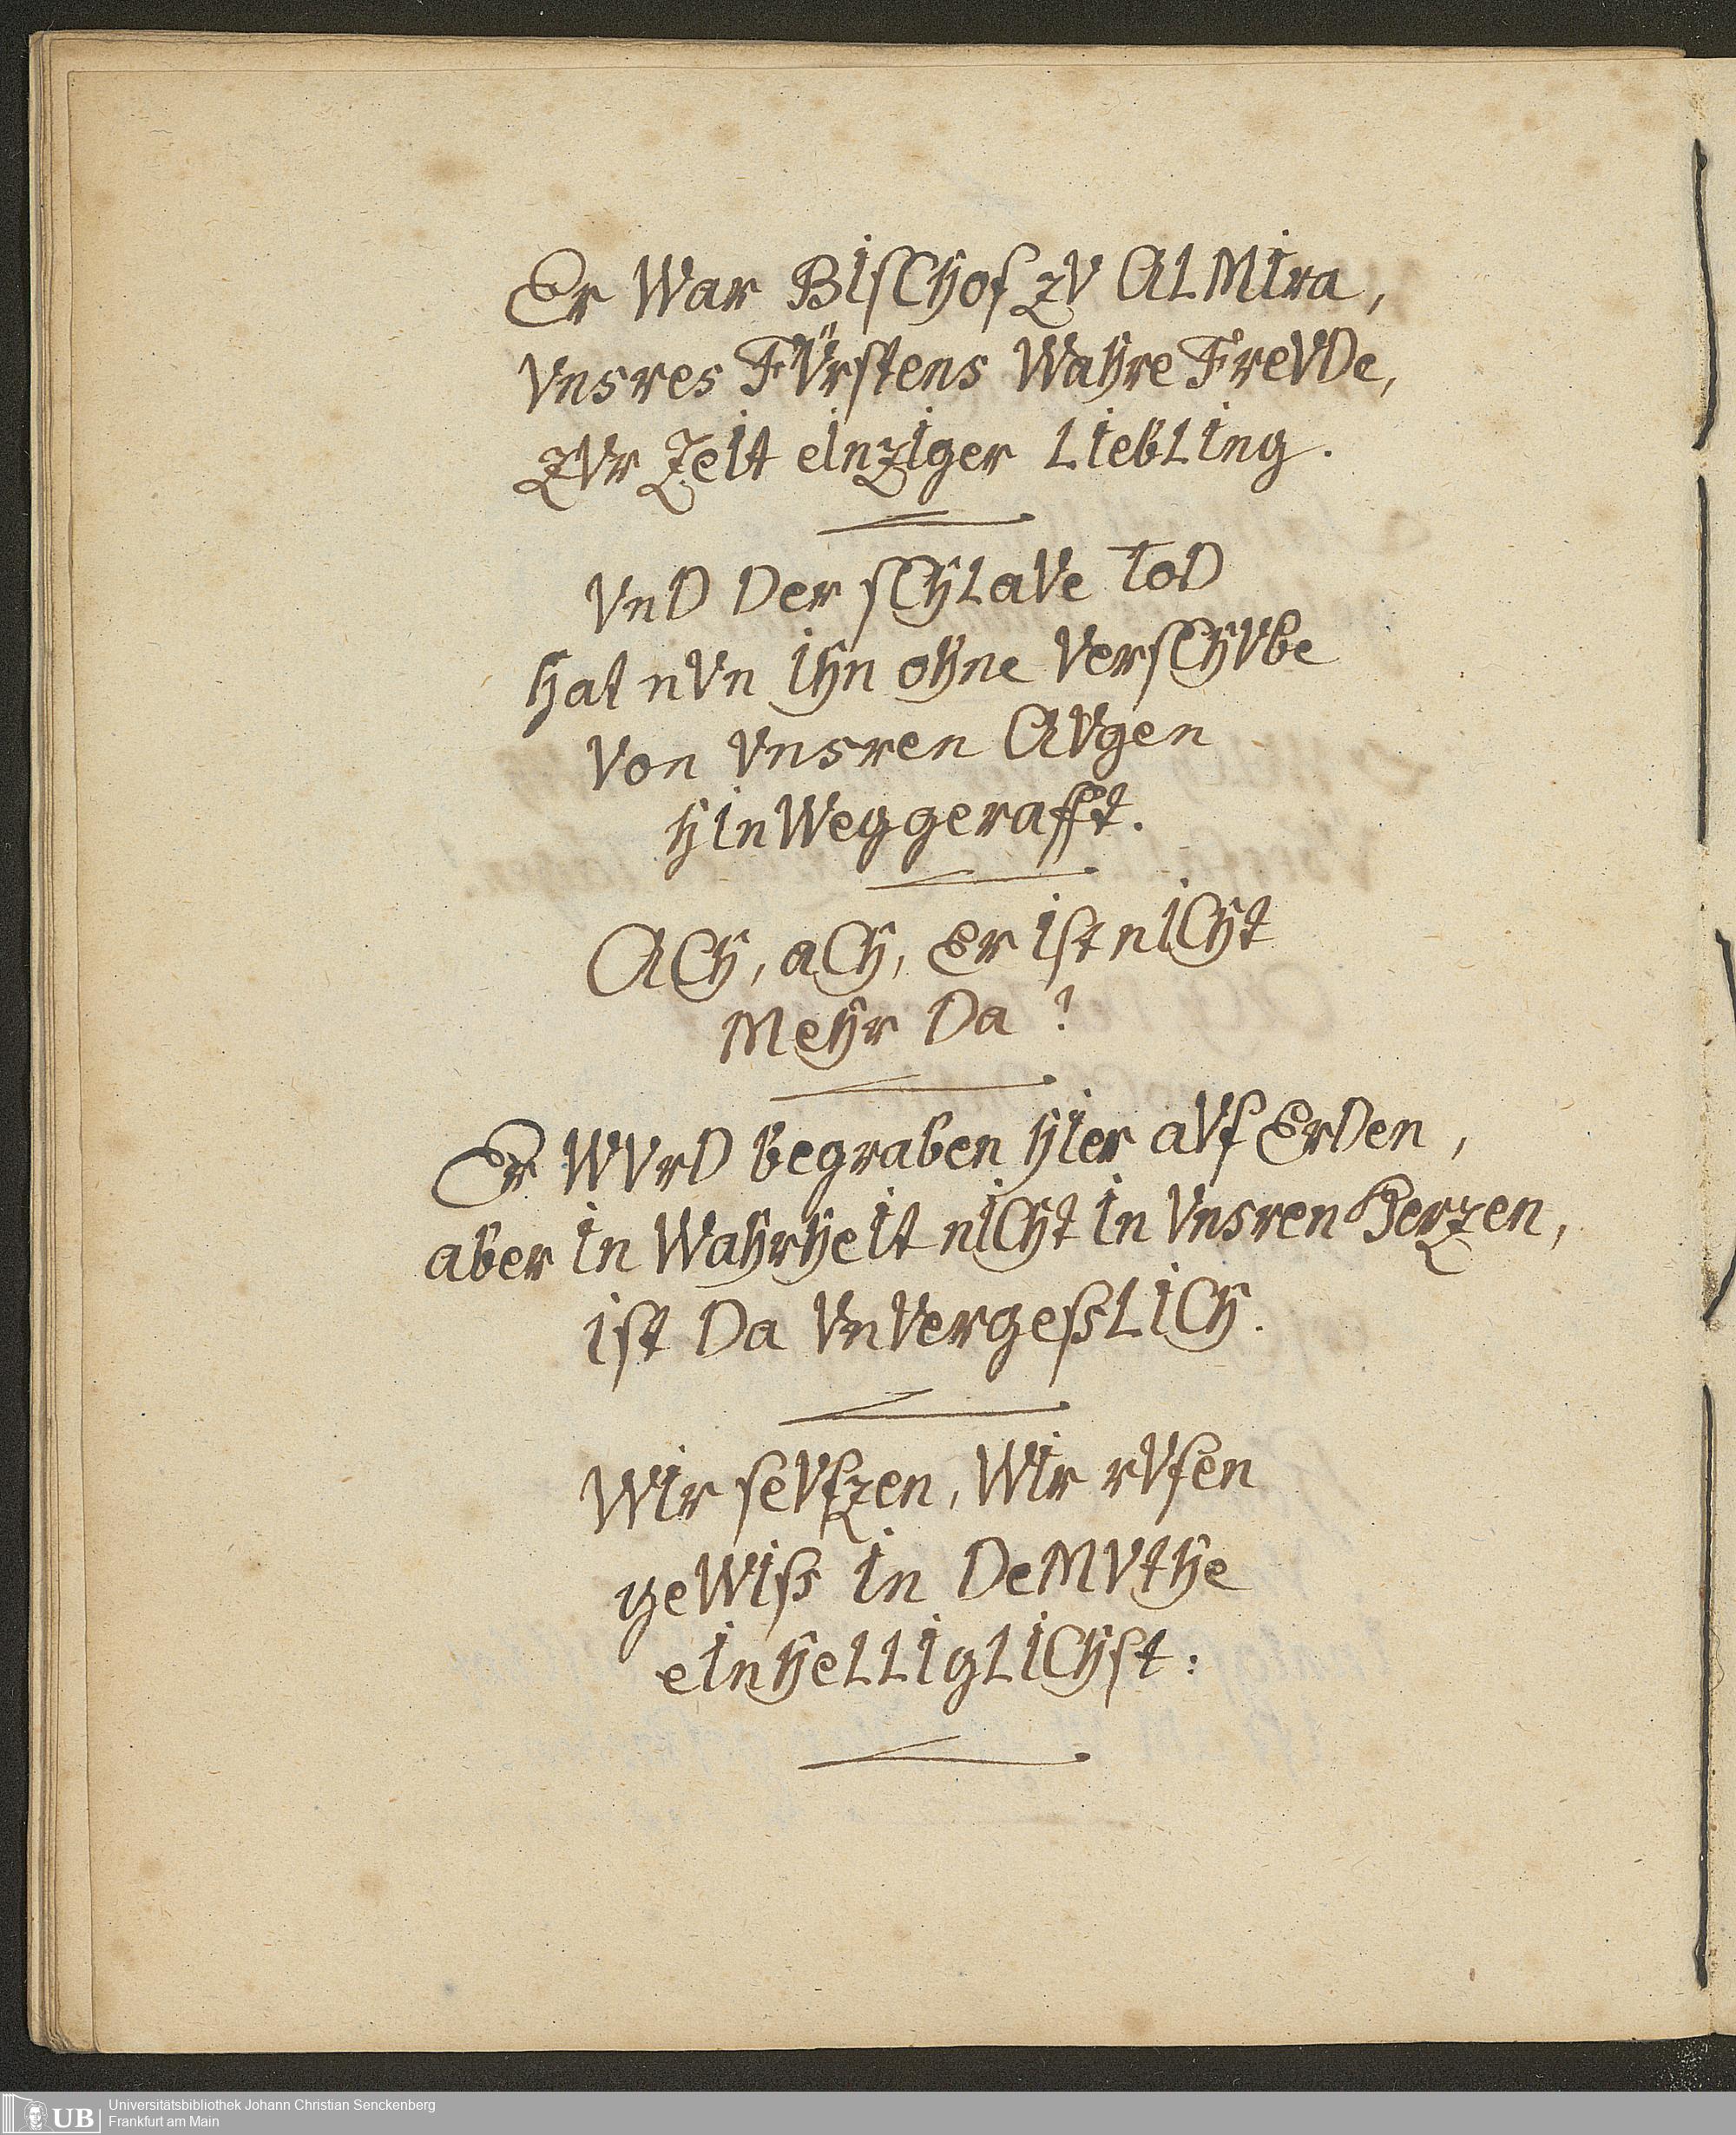 Er War BIsChof zV ALMIra,
Vnsres FÜrstens Wahre FreVDe,
zVr ZeIt eInzIger LIebLIng.
VnD Der sChLaVe ToD
hat nVn Ihn ohne VersChVbe
Von Vnsren AVgen
hInWeggerafft.
ACh, aCh, Er Ist nICht
Mehr Da?
Er WVrD begraben hIer aVf ErDen,
aber In WahrheIt nICht In Vnsren Herzen,
Ist Da VnVergeßLICh.
WIr seVfzen, WIr rVfen
geWIß In DeMVthe
eInheLLIgLIChst:
UB
Universitätsbibliothek Johann Christian Senckenberg
Frankfurt am Main